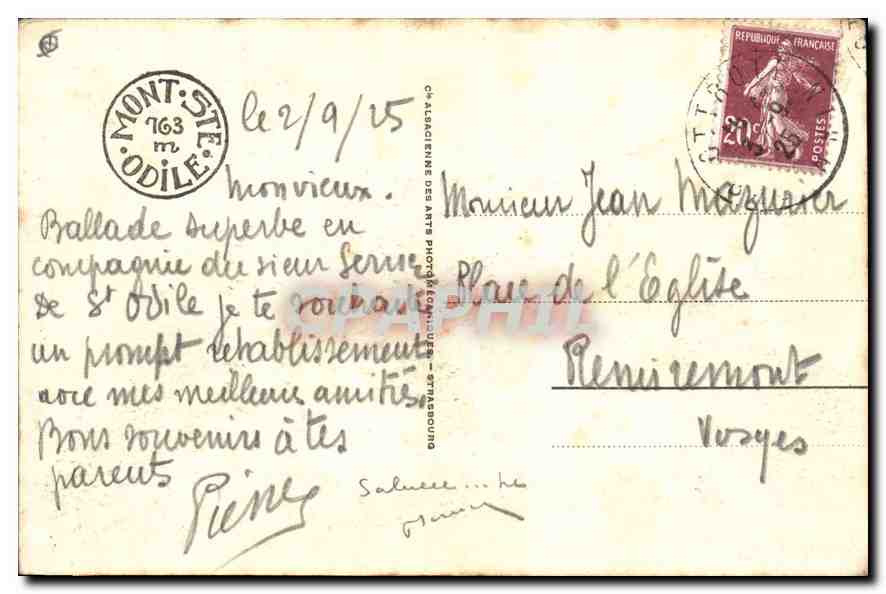 MONT · STE · ODILE ·
763
m
le 2/9/25
Mon vieux.
Ballade superbe en
compagnie du sieur
de St Odile je te souhaite
un prompt rétablissement
avec mes meilleurs amitiés.
Bons souvenirs à tes
parents
Pierre
Cie ALSACIENNE DES ARTS PHOTOMÉCANIQUES. — STRASBOURG
REPUBLIQUE FRANÇAISE
20c
POSTES
OTTROTT
25
Monsieur Jean Mazurier
Place de l'Eglise
Remiremont
Vosges
CPAPHIL